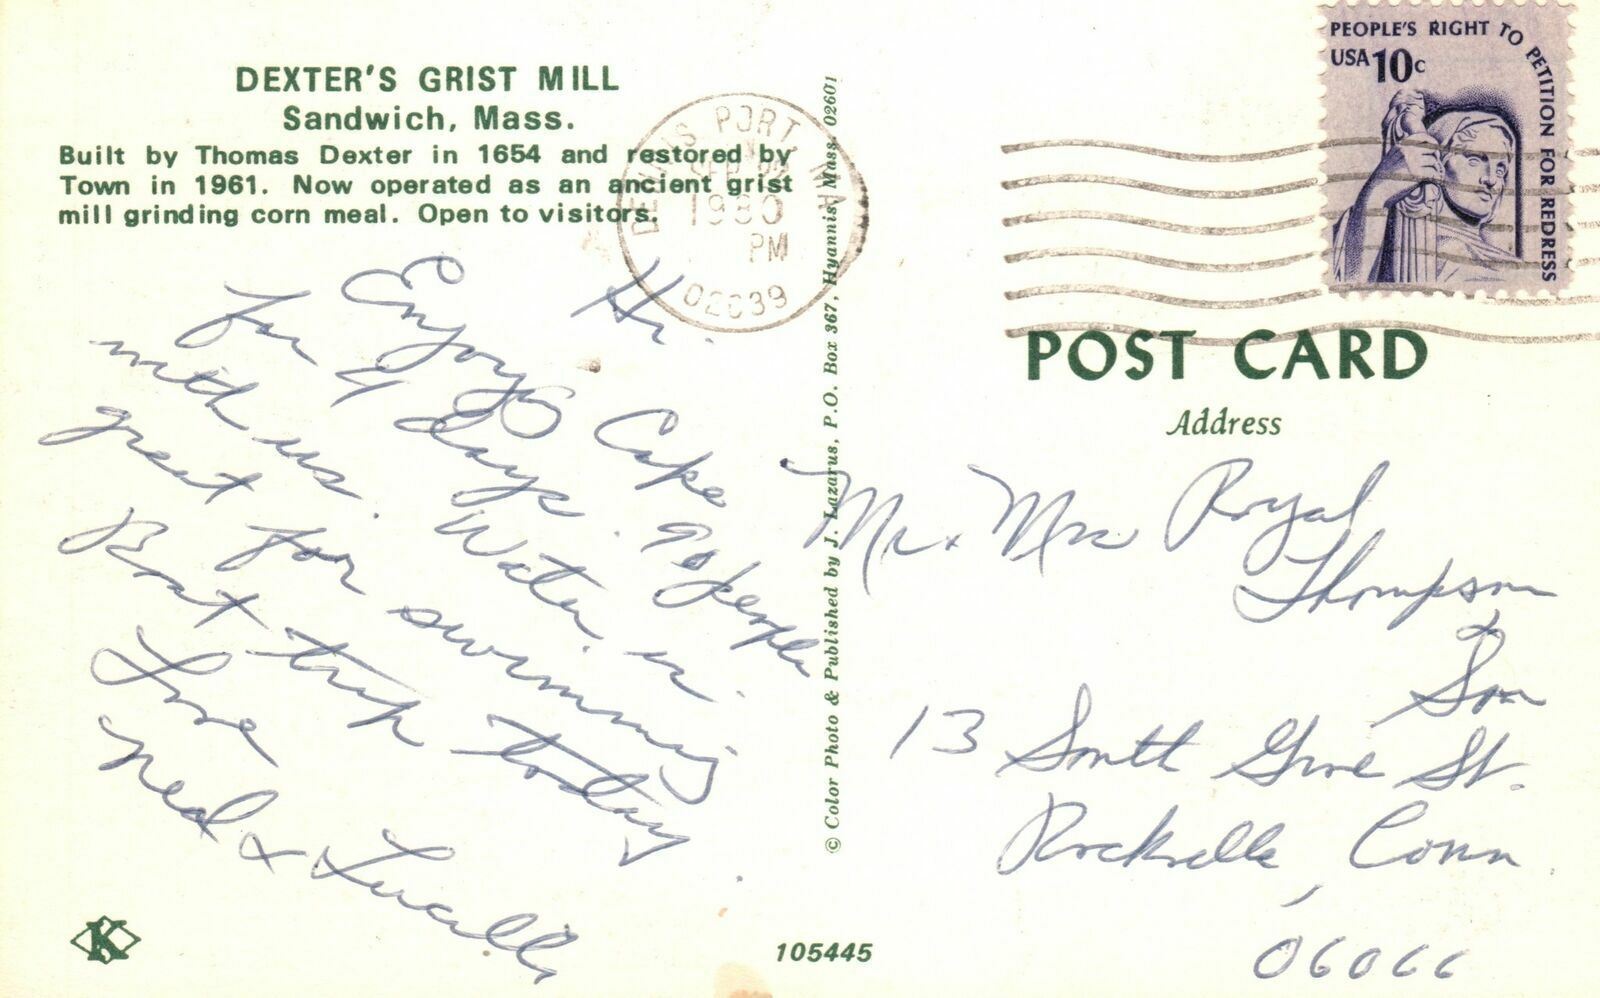 DEXTER'S GRIST MILL
Sandwich, Mass.
Built by Thomas Dexter in 1654 and restored by
Town in 1961. Now operated as an ancient grist
mill grinding corn meal. Open to visitors.
Hi.
Enjoyg Cape
for 4 days. 90 people
with us. Water is
great for swimming.
Boat trip today.
Love
Neal & Lucille
K
105445
© Color Photo & Published by J. Lazarus, P.O. Box 367, Hyannis, Mass. 02601
DENNIS PORT MA
SEP
1980
PM
02639
PEOPLE'S RIGHT TO PETITION FOR REDRESS
USA 10c
POST CARD
Address
Mr. Mrs Royal
Thompson
&
Son
13 South Grove St.
Rockville, Conn
06066